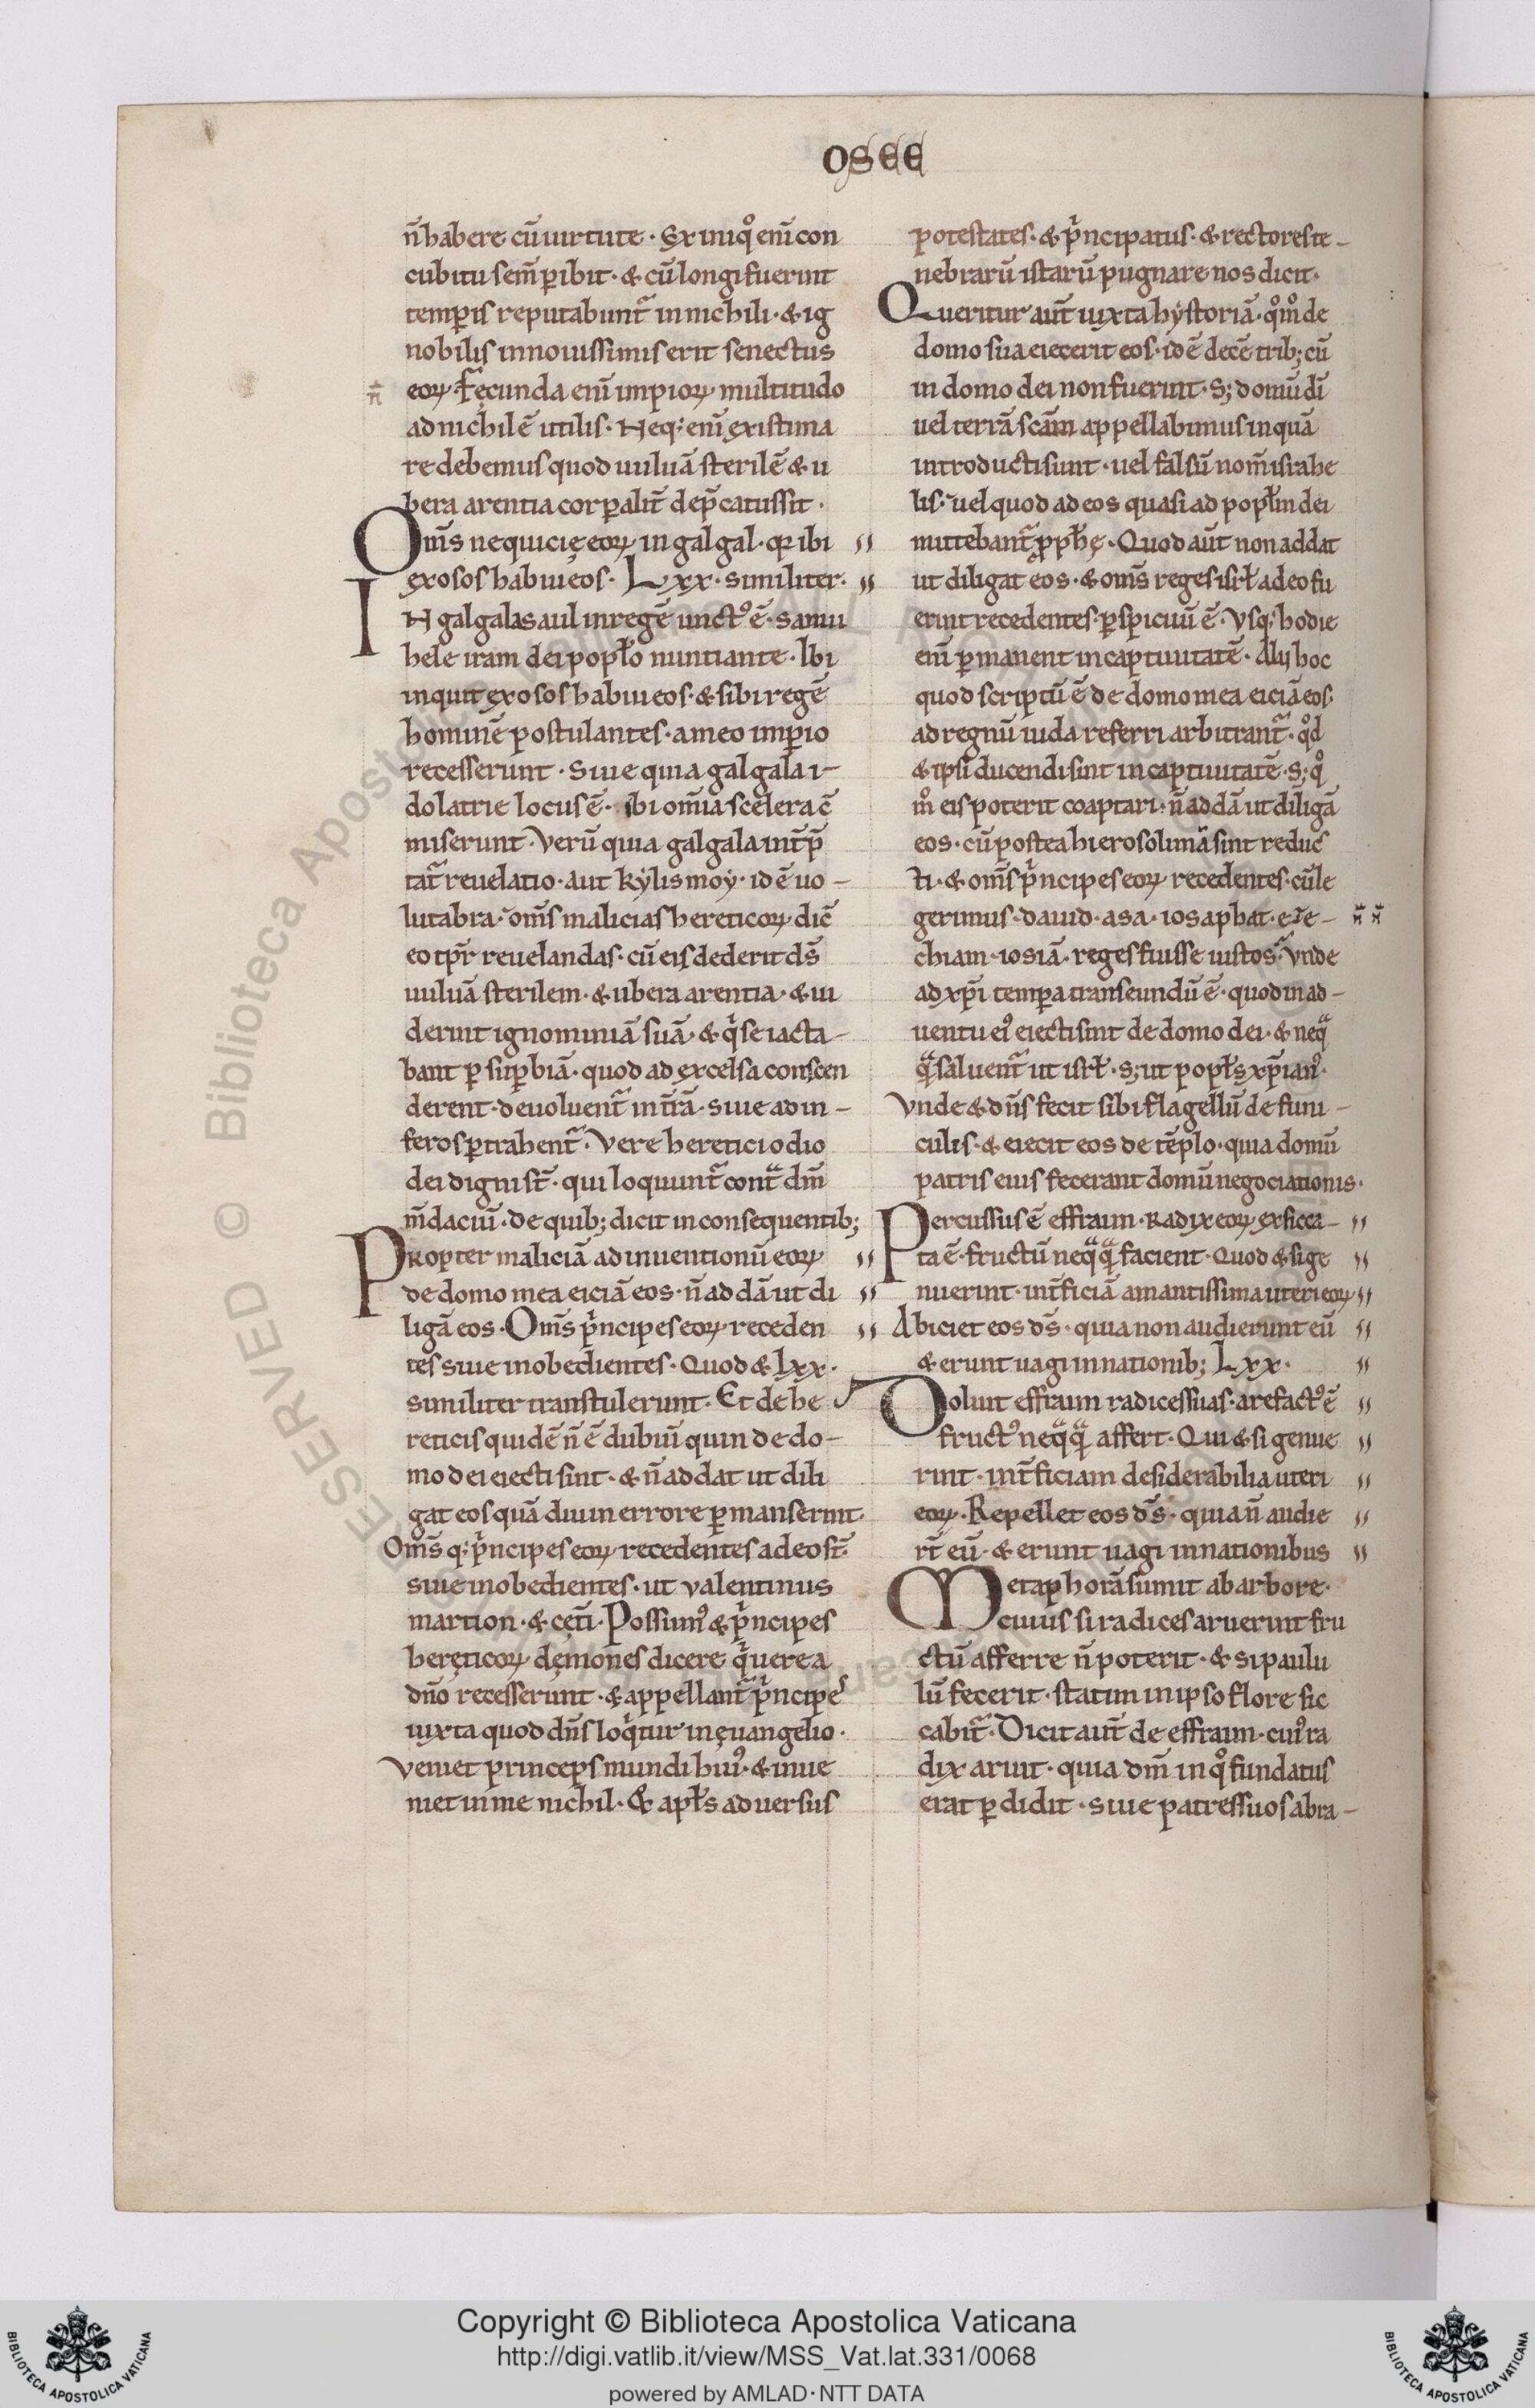 OSEE
n̄ habere cū uirtute · Ex iniq̊ enī con
cubitu sem̄ ꝑibit · & cū longi fuerint
temꝑis reputabunt᷑ in nichili · & ig
nobilis in nouissimis erit senectus
eoꝝ · Fęcunda enī impioꝝ multitudo
ad nichil ē utilis · Neq; enī existima
re debemus quod uuluā sterilē & u
bera arentia corꝑalit̄ dep̄catus sit ·
Om̄s nequicię eoꝝ in galgal · qr ibi
exosos habui eos · Lxx · similiter ·
IN galgala saul in regē unctꝰ ē · samu
hele iram dei popl̄o nuntiante · Ibi
inquit exosos habui eos · & sibi regē
hominē postulantes · a meo imꝑio
recesserunt · Siue quia galgala i-
dolatrie locus ē · ibi om̄ia scelera c̄
miserunt · Verū quia galgala int̄p̄
tat᷑ reuelatio · aut kylismoy · id ē uo-
lutabra · om̄s malicias hereticoꝝ dic̄
eo tp̄r reuelandas · cū eis dederit ds̄
uuluā sterilem · & ubera arentia · & ui
derint ignominiā suā · & qͥ se iacta-
bant ꝑ suꝑbiā · quod ad excelsa conscen
derent · deuoluent᷑ in t̄rā · siue ad in-
feros ꝑtrahent᷑ · Vere heretici odio
dei digni st̄ · qui loquunt᷑ contᷓ dm̄
m̄daciū · de quib; dicit in consequentib;
PRopter maliciā adinuentionū eoꝝ
de domo mea eiciā eos · n̄ addā ut di
ligā eos · Om̄s pͥncipes eoꝝ receden
tes siue inobedientes · Quod & Lxx ·
similiter transtulerunt · Et de he
reticis quidē n̄ ē dubiū quin de do-
mo dei eiecti sint · & n̄ addat ut dili
gat eos quādiu in errore ꝑmanserint ·
Om̄s q; pͥncipes eoꝝ recedentes a deo st̄ ·
siue inobedientes · ut valentinus
martion · & cęt̄i · Possumꝰ & pͥncipes
heręticoꝝ dęmones dicere qͥ uere a
dn̄o recesserunt · & appellant᷑ pͥncipes
iuxta quod dn̄s loqͥtur in ęuangelio ·
Veniet princeps mundi huiꝰ · & inue
niet in me nichil · & apl̄s aduersus
potestates · & pͥncipatus · & rectores te-
nebrarū istarū pugnare nos dicit ·
Queritur aut̄ iuxta hystoriā · qͦmͦ de
domo sua eiecerit eos · id ē decē trib; cū
in domo dei non fuerint · S; domū dī
uel terrā scām appellabimus in quā
introducti sunt · uel falsū nom̄ israhe
lis · uel quod ad eos quasi ad popl̄m dei
mittebant᷑ ꝓph̄ę · Quod aut̄ non addat
ut diligat eos · & om̄s reges isrl̄ a deo fu
erint recedentes · ꝑspicuū ē · Vsq; hodie
enī ꝑmanent in captiuitatē · Alij hoc
quod scriptū ē de domo mea eiciā eos ·
ad regnū iuda referri arbitrant᷑ · qͦd
& ipsi ducendi sint in captiuitatē · S; qͦ
mͦ eis poterit coaptari · n̄ addā ut diligā
eos · cū postea hierosolimā sint reduc
ti · & om̄s pͥncipes eoꝝ recedentes · cū le
gerimus · dauid · asa · iosaphat · eze-
chiam · iosiā · reges fuisse iustos · Vnde
ad xp̄i temꝑa transeundū ē · quod in ad-
uentu eiꝰ eiecti sint de domo dei · & neqᷓ
qᷓ saluent᷑ ut isrl̄ · S; ut popl̄s xp̄ianꝰ ·
Vnde & dn̄s fecit sibi flagellū de funi-
culis · & eiecit eos de tēplo · quia domū
patris eius fecerant domū negociationis ·
Percussus ē effraim · Radix eoꝝ exsicca-
ta ē · fructū neqᷓqᷓ facient · Quod & si ge
nuerint · int̄ficiā amantissima uteri eoꝝ
Abiciet eos ds̄ · quia non audierunt eū
& erunt uagi in nationib; Lxx ·
Doluit effraim radices suas · arefactꝰ ē
fructꝰ neqᷓqᷓ affert · Qui & si genue
rint · int̄ficiam desiderabilia uteri
eoꝝ · Repellet eos ds̄ · quia n̄ audie
rt̄ eū · & erunt uagi in nationibus
Metaphorā sumit ab arbore ·
cuius si radices aruerint fru
ctū afferre n̄ poterit · & si paulu
lū fecerit · statim in ipso flore sic
cabit᷑ · Dicit aut̄ de effraim · cuiꝰ ra
dix aruit · quia dm̄ in qͦ fundatus
erat ꝑdidit · siue patres suos abra-
Copyright © Biblioteca Apostolica Vaticana
http://digi.vatlib.it/view/MSS_Vat.lat.331/0068
powered by AMLAD · NTT DATA
BIBLIOTECA APOSTOLICA VATICANA
BIBLIOTECA APOSTOLICA VATICANA